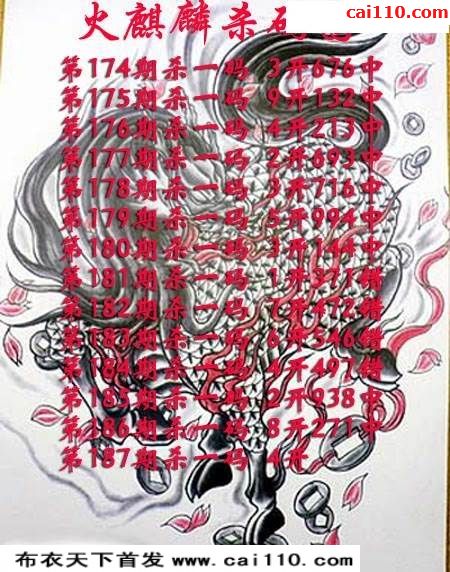 cai110.com
火麒麟杀码
第174期杀一码 3开676中
第175期杀一码 9开132中
第176期杀一码 4开213中
第177期杀一码 2开693中
第178期杀一码 3开716中
第179期杀一码 5开994中
第180期杀一码 3开144中
第181期杀一码 1开371错
第182期杀一码 7开472错
第183期杀一码 6开546错
第184期杀一码 4开497错
第185期杀一码 2开938中
第186期杀一码 8开271中
第187期杀一码 4开
布衣天下首发 www.cai110.com